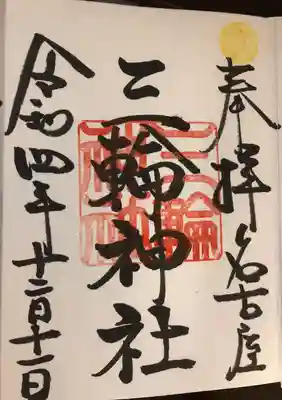 奉拝 名古屋
三輪神社
三輪神社
令和四年十二月十一日